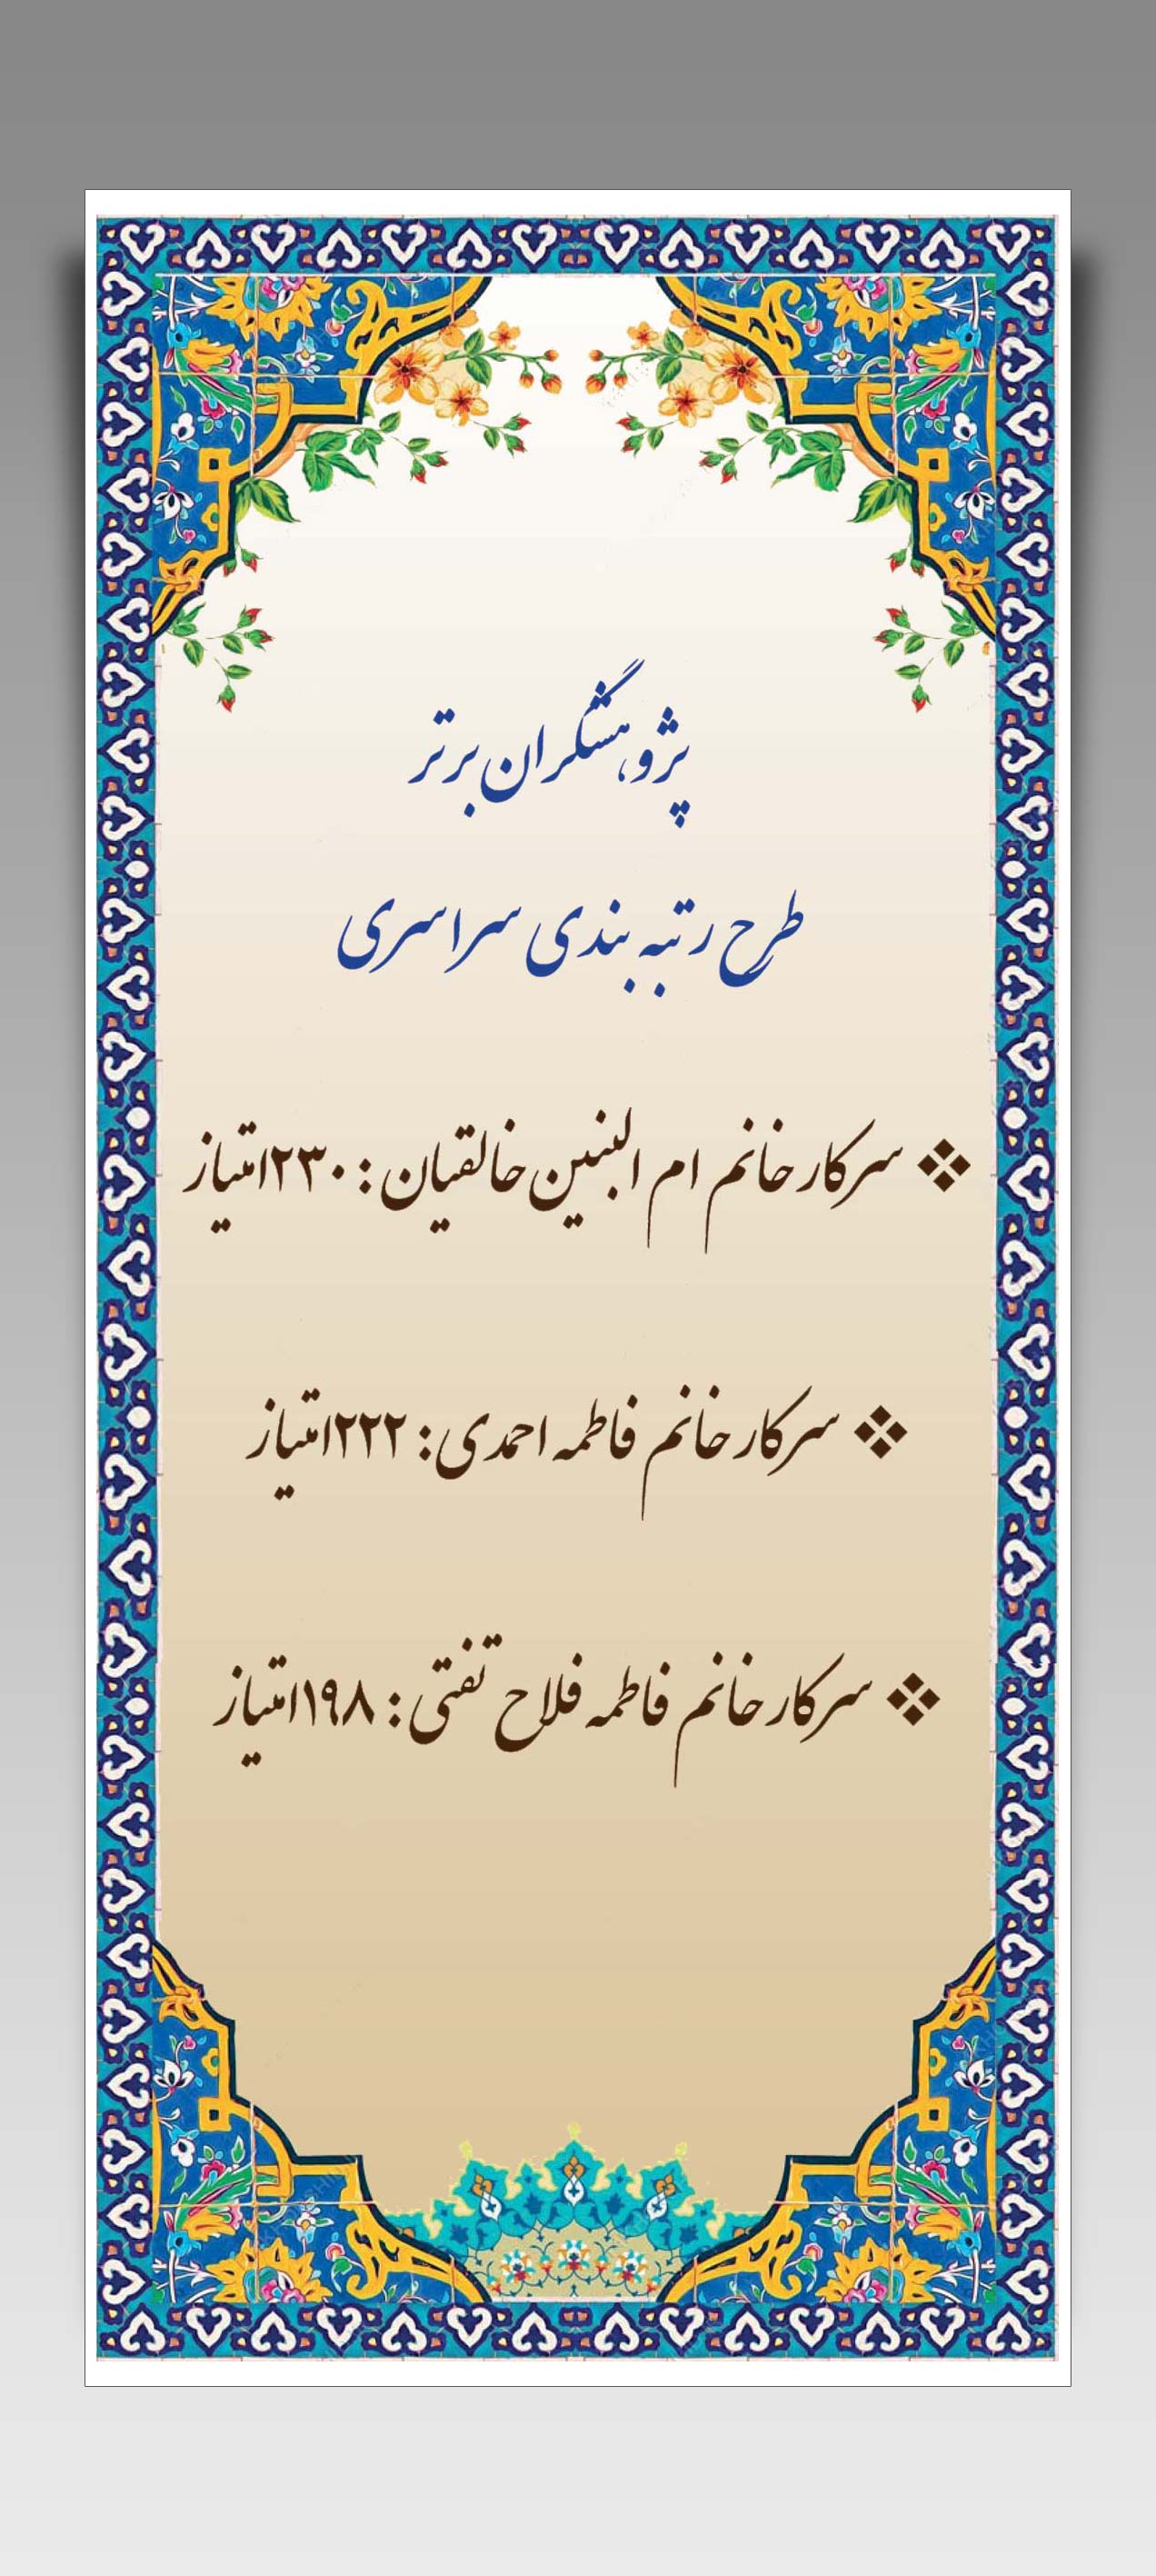 پژوهشگران برتر
طرح رتبه بندی سراسری
❖ سرکار خانم ام البنین خالقیان : ۲۳۰امتیاز
❖ سرکار خانم فاطمه احمدی : ۲۲۲امتیاز
❖ سرکار خانم فاطمه فلاح تفتی : ۱۹۸امتیاز